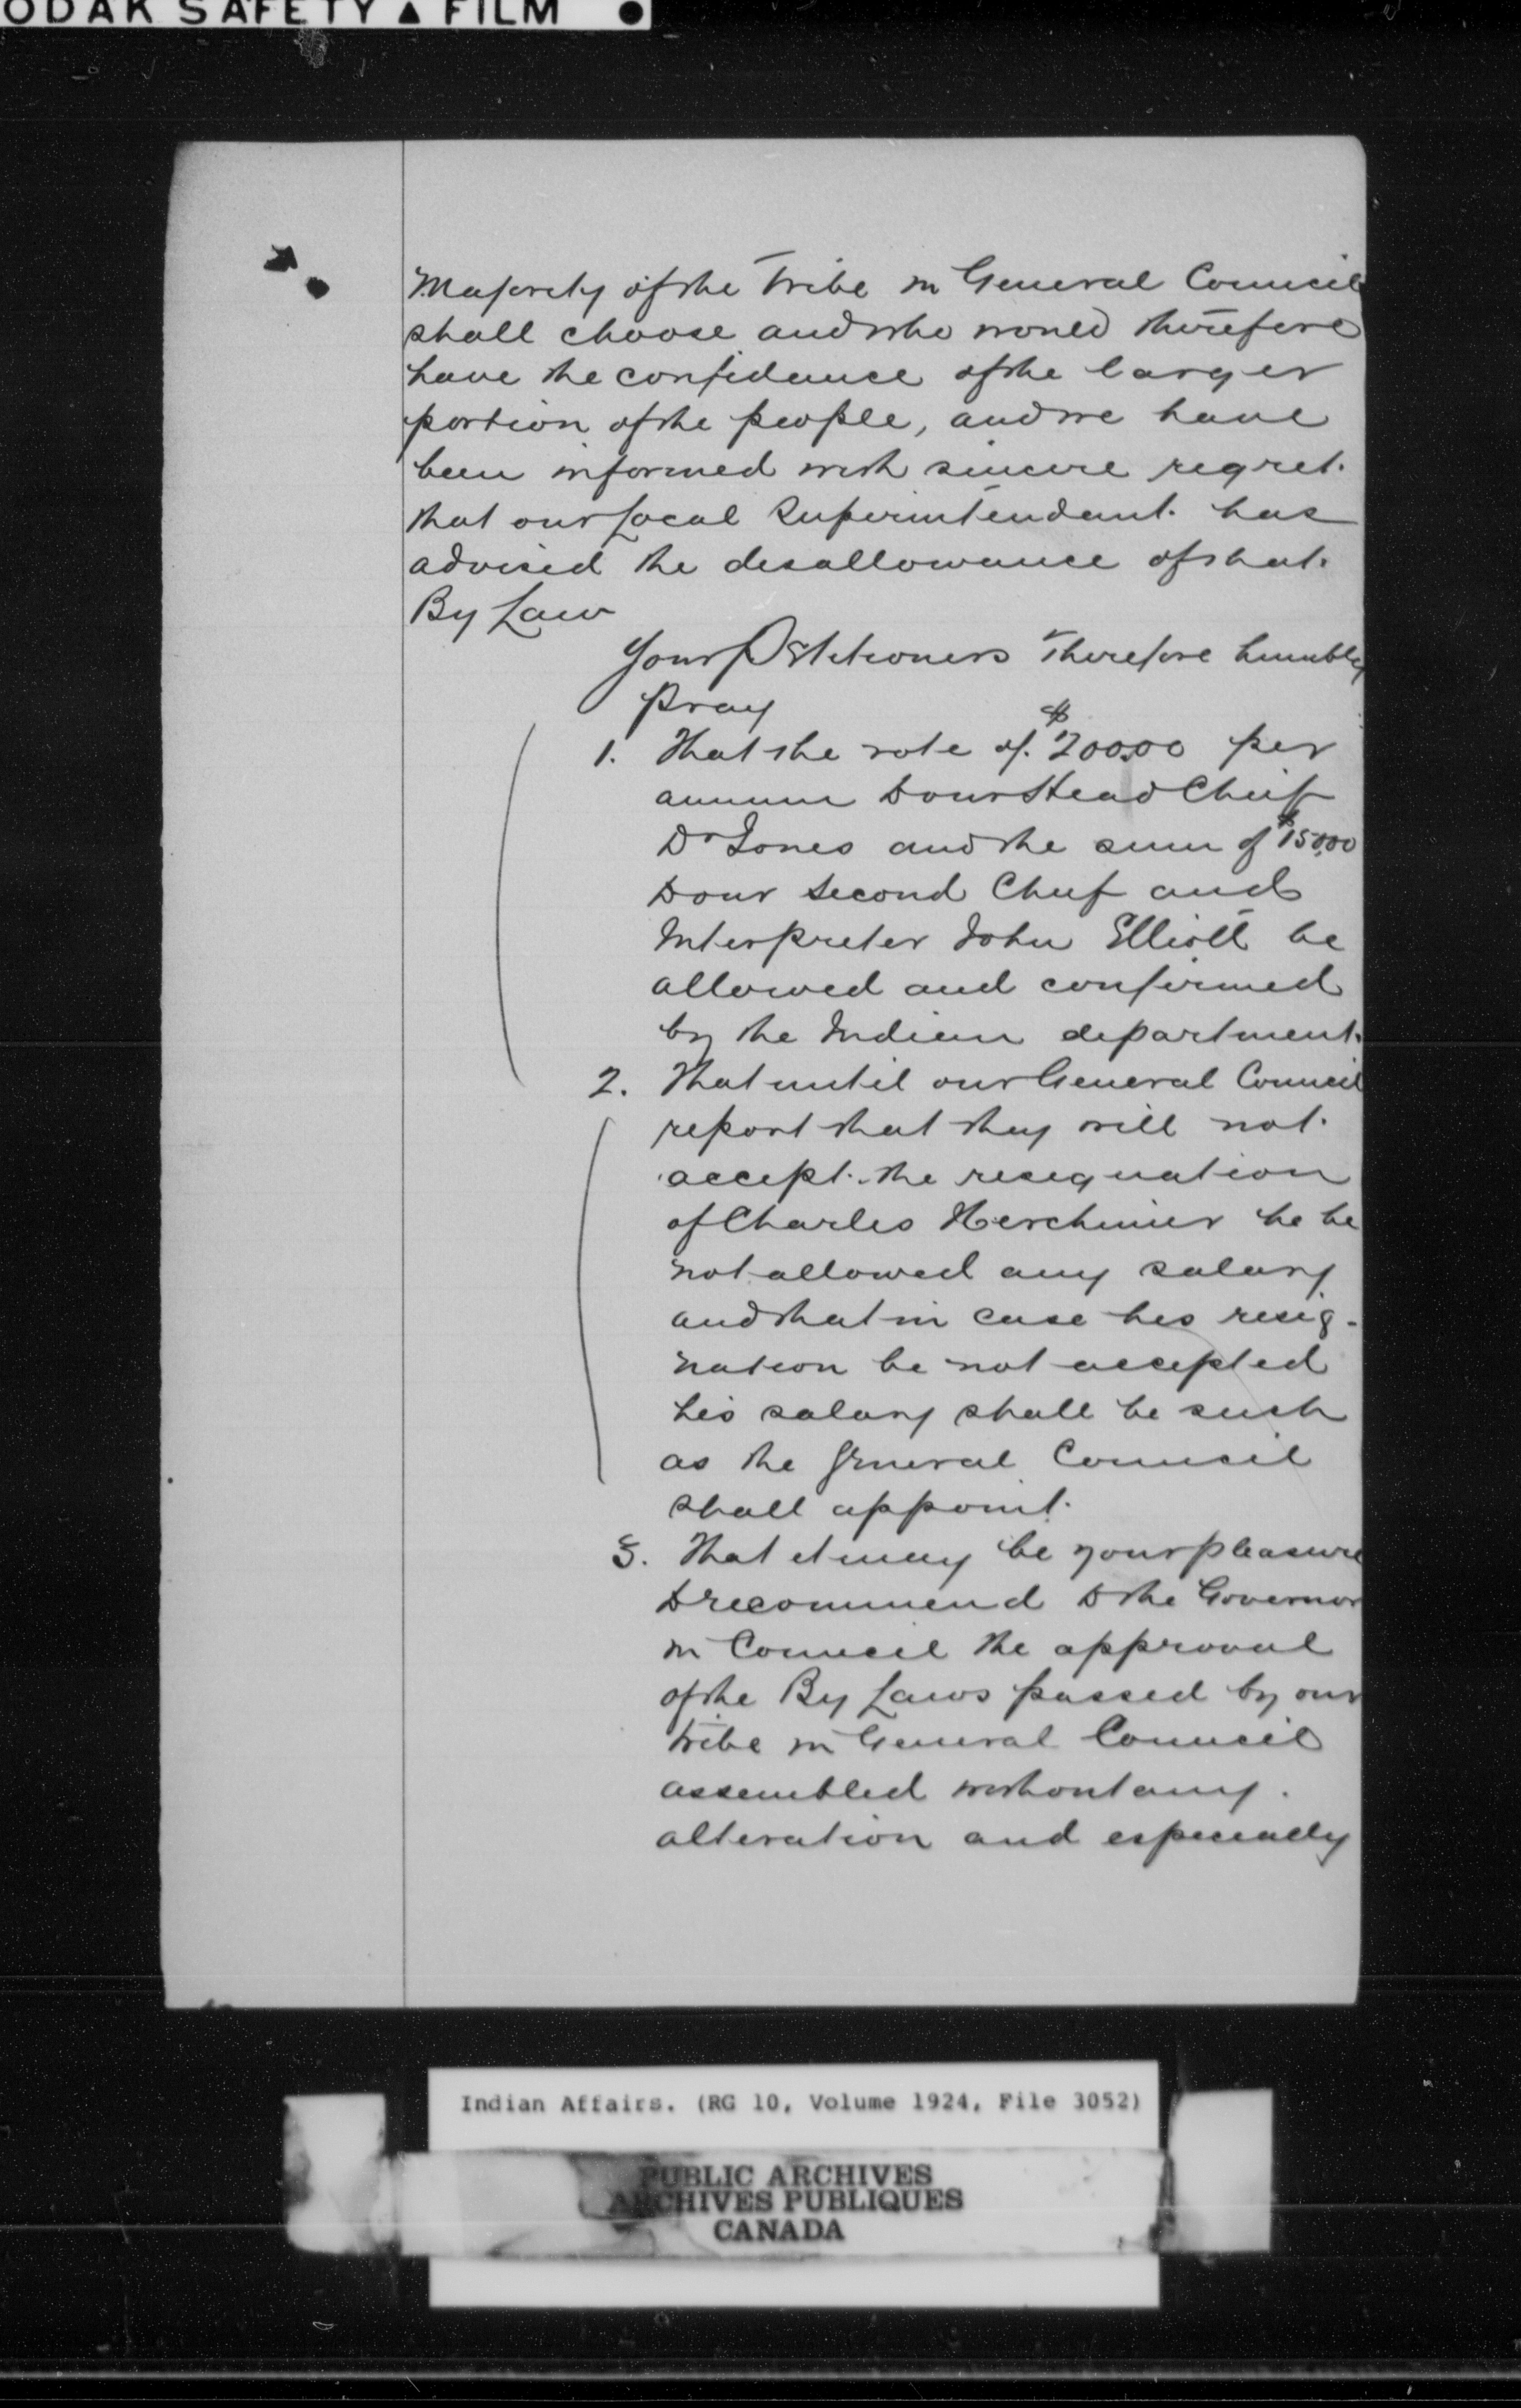 ODAK SAFETY ▲ FILM ●
Majority of the Tribe in General Council
shall choose and who would therefore
have the confidence of the larger
portion of the people, and we have
been informed with sincere regret
that our Local Superintendant has
advised the disallowance of that
By Law
Your Petitioners Therefore humbly
Pray
1. That the vote of $200.00 per
annum to our Head Chief
Dr Jones and the sum of $150.00
to our Second Chief and
Interpreter John Elliott be
allowed and confirmed
by the Indian department.
2. That until our General Council
report that they will not
accept the resignation
of Charles Herchimer he be
not allowed any salary
and that in case his resig-
nation be not accepted
his salary shall be such
as the General Council
shall appoint.
3. That it may be your pleasure
to recommend to the Governor
in Council the approval
of the By Laws passed by our
tribe in General Council
assembled without any
alteration and especially
Indian Affairs. (RG 10, Volume 1924, File 3052)
PUBLIC ARCHIVES
ARCHIVES PUBLIQUES
CANADA